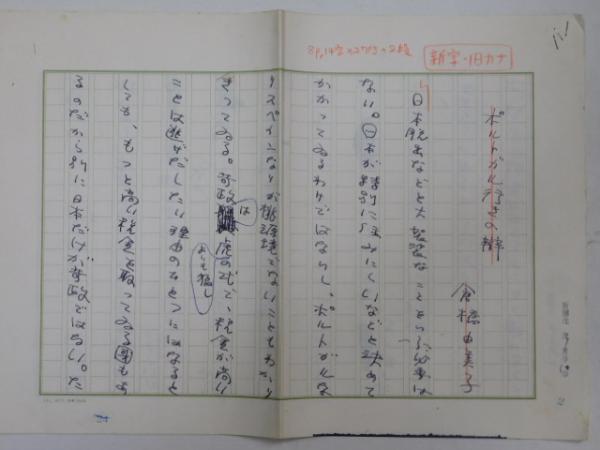 8P、14字×27行×2段
新字・旧カナ
ポルトガル行きの弁
倉橋由美子
日本脱出などと大袈裟なことをいふ必要は
ない。日本が特別に住みにくいなどと決めて
かかつてゐるわけではないし、ポルトガルな
りスペインなりが桃源境でないこともわかり
きつてゐる。苛政は虎よりも猛し で、税金が高い
ことは逃げだしたい理由のひとつにはなると
しても、もつと高い税金を取つてゐる国もあ
るのだから別に日本だけが苛政ではない。た